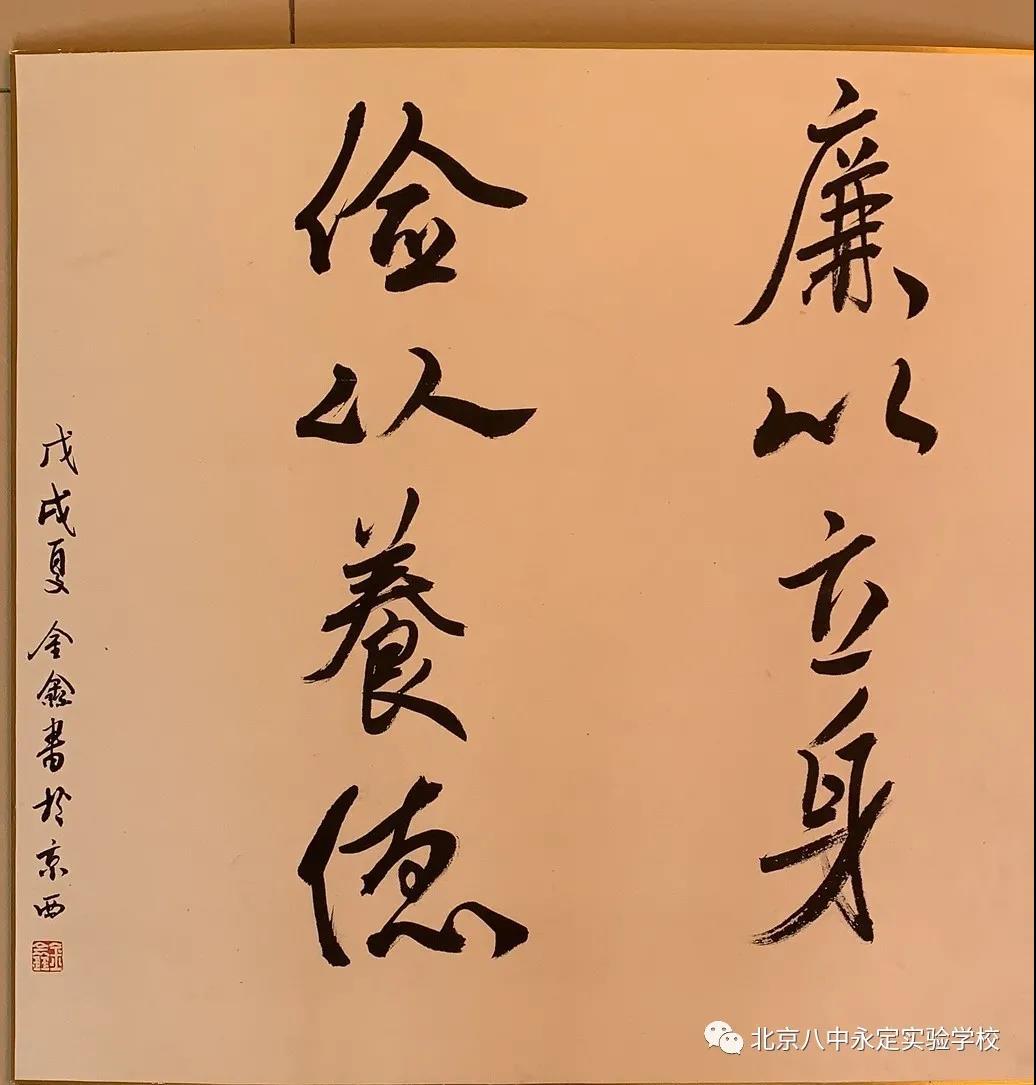 廉以立身
儉以養德
戊戌夏金鑫書於京西
北京八中永定实验学校